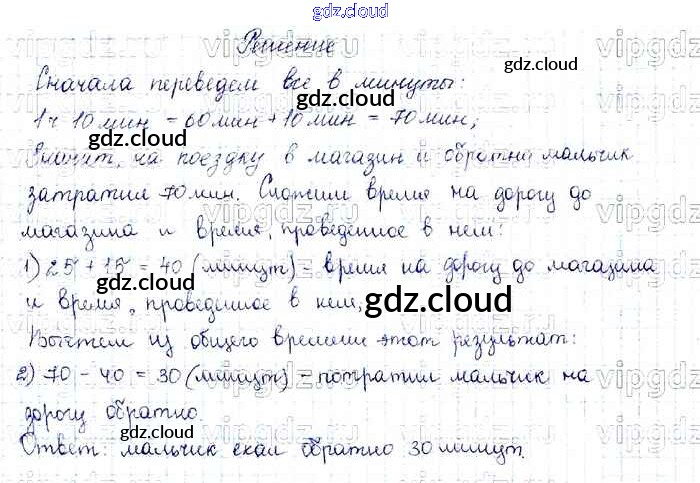 gdz.cloud
Решение
Сначала переведем все в минуты:
1 ч 10 мин = 60 мин + 10 мин = 70 мин;
Значит, на поездку в магазин и обратно мальчик
затратил 70 мин. Сложим время на дорогу до
магазина и время, проведенное в нем:
1) 25 + 15 = 40 (минут) - время на дорогу до магазина
и время, проведенное в нем,
Вычтем из общего времени этот результат:
2) 70 - 40 = 30 (минут) - потратил мальчик на
дорогу обратно.
Ответ: мальчик ехал обратно 30 минут.